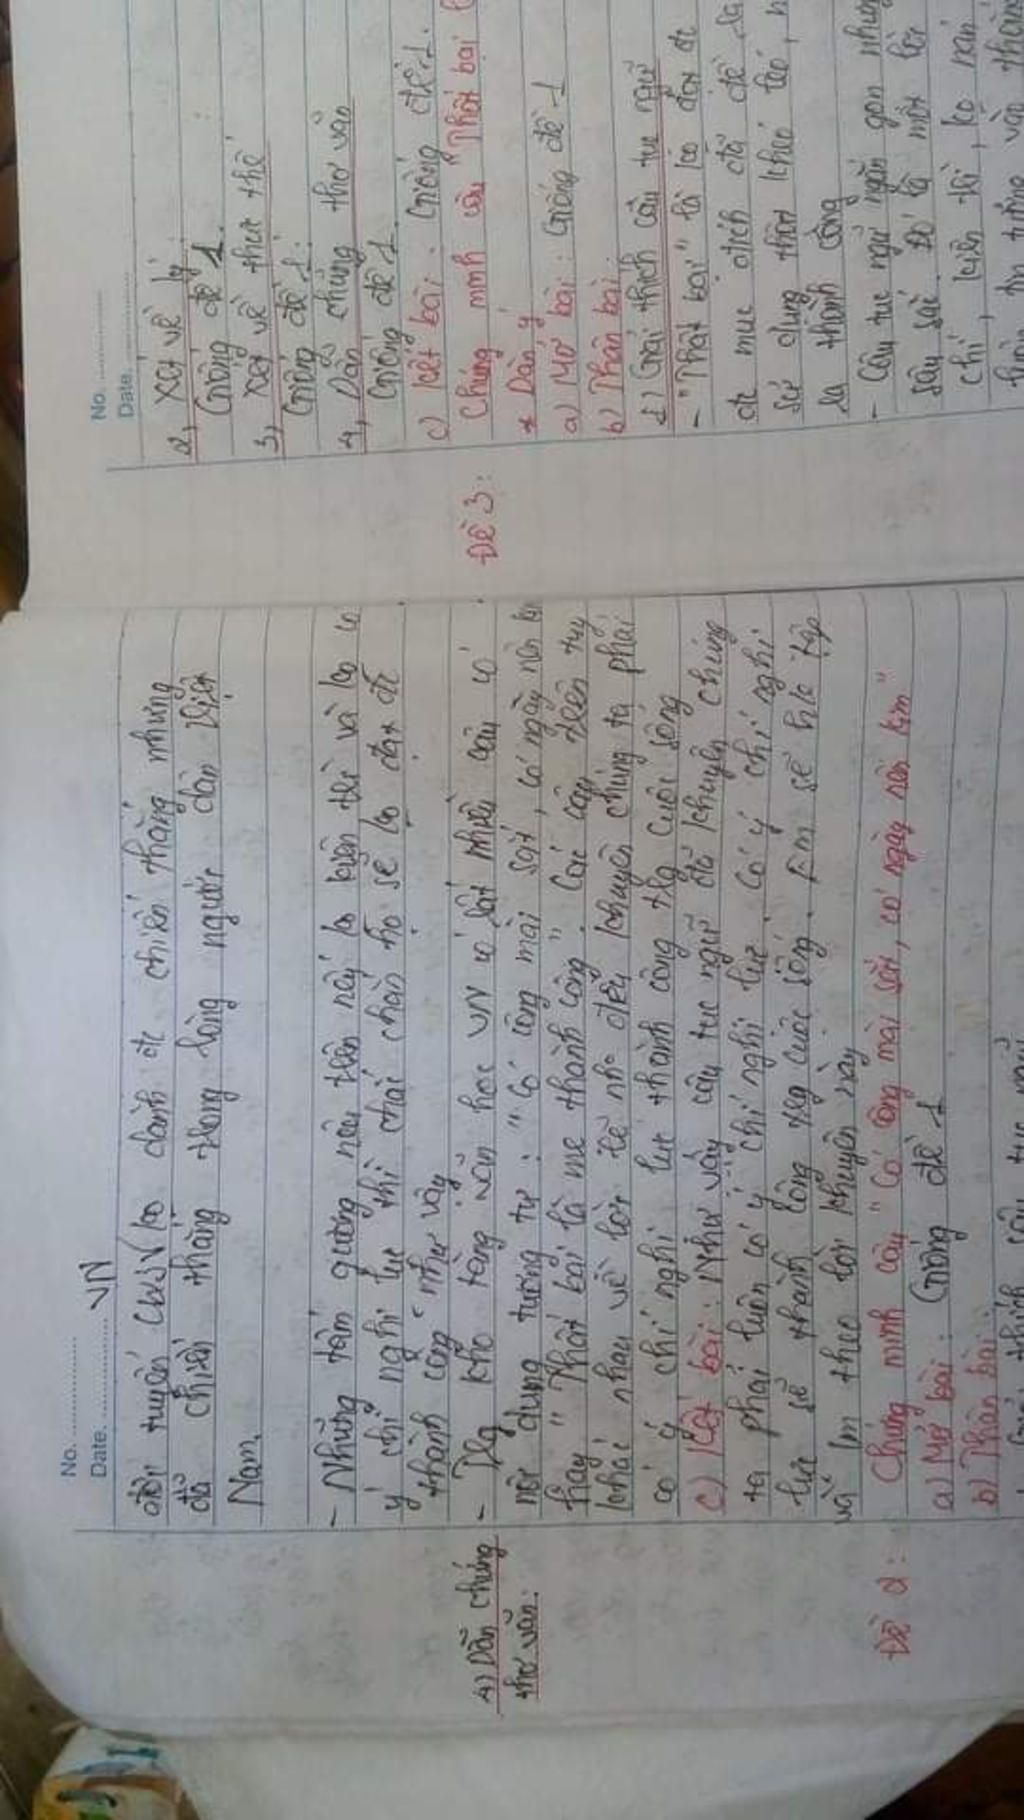 No. ............
Date. ............ VN
đội tuyển U23VN ko dành đc chiến thắng nhưng
đã chiến thắng trong lòng người dân Việt
Nam.
- Những tấm gương nêu trên nếu ko kiên trì và ko có
ý chí nghị lực thì chắc chắn họ sẽ ko đạt đc
thành công như vậy
4) Dẫn chứng
thơ văn:
- Trg kho tàng văn học VN có rất nhiều câu có
nội dung tương tự: "Có công mài sắt, có ngày nên kim
hay "Thất bại là mẹ thành công". Các câu trên tuy
khác nhau về lời lẽ nhg đều khuyên chúng ta phải
có ý chí nghị lực thành công trg cuộc sống
c) Kết bài: Như vậy câu tục ngữ đã khuyên chúng
ta phải luôn có ý chí nghị lực. Có ý chí nghị
lực sẽ thành công trg cuộc sống. Em sẽ học tập
và làm theo lời khuyên này
Đề 2: Chứng minh câu "Có công mài sắt, có ngày nên kim"
a) Mở bài: Giống đề 1
b) Thân bài:
giải thích câu tục ngữ
No. ............
Date. ............
2, Xét về lý
Giống đề 1.
3, Xét về thực thế
Giống đề 1.
4, Dẫn chứng thơ văn
Giống đề 1.
c) Kết bài: Giống đề 1.
Đề 3: Chứng minh câu "Thất bại
* Dàn ý
a) Mở bài: Giống đề 1
b) Thân bài:
1) Giải thích câu tục ngữ
- "Thất bại" là ko đạt đc
đc mục đích đã đề
sử dụng khéo léo,
là thành công
- Câu tục ngữ ngắn gọn nhưng
sâu sắc. Đó là một lời
chí, kiên trì, ko nản
tin tưởng vào